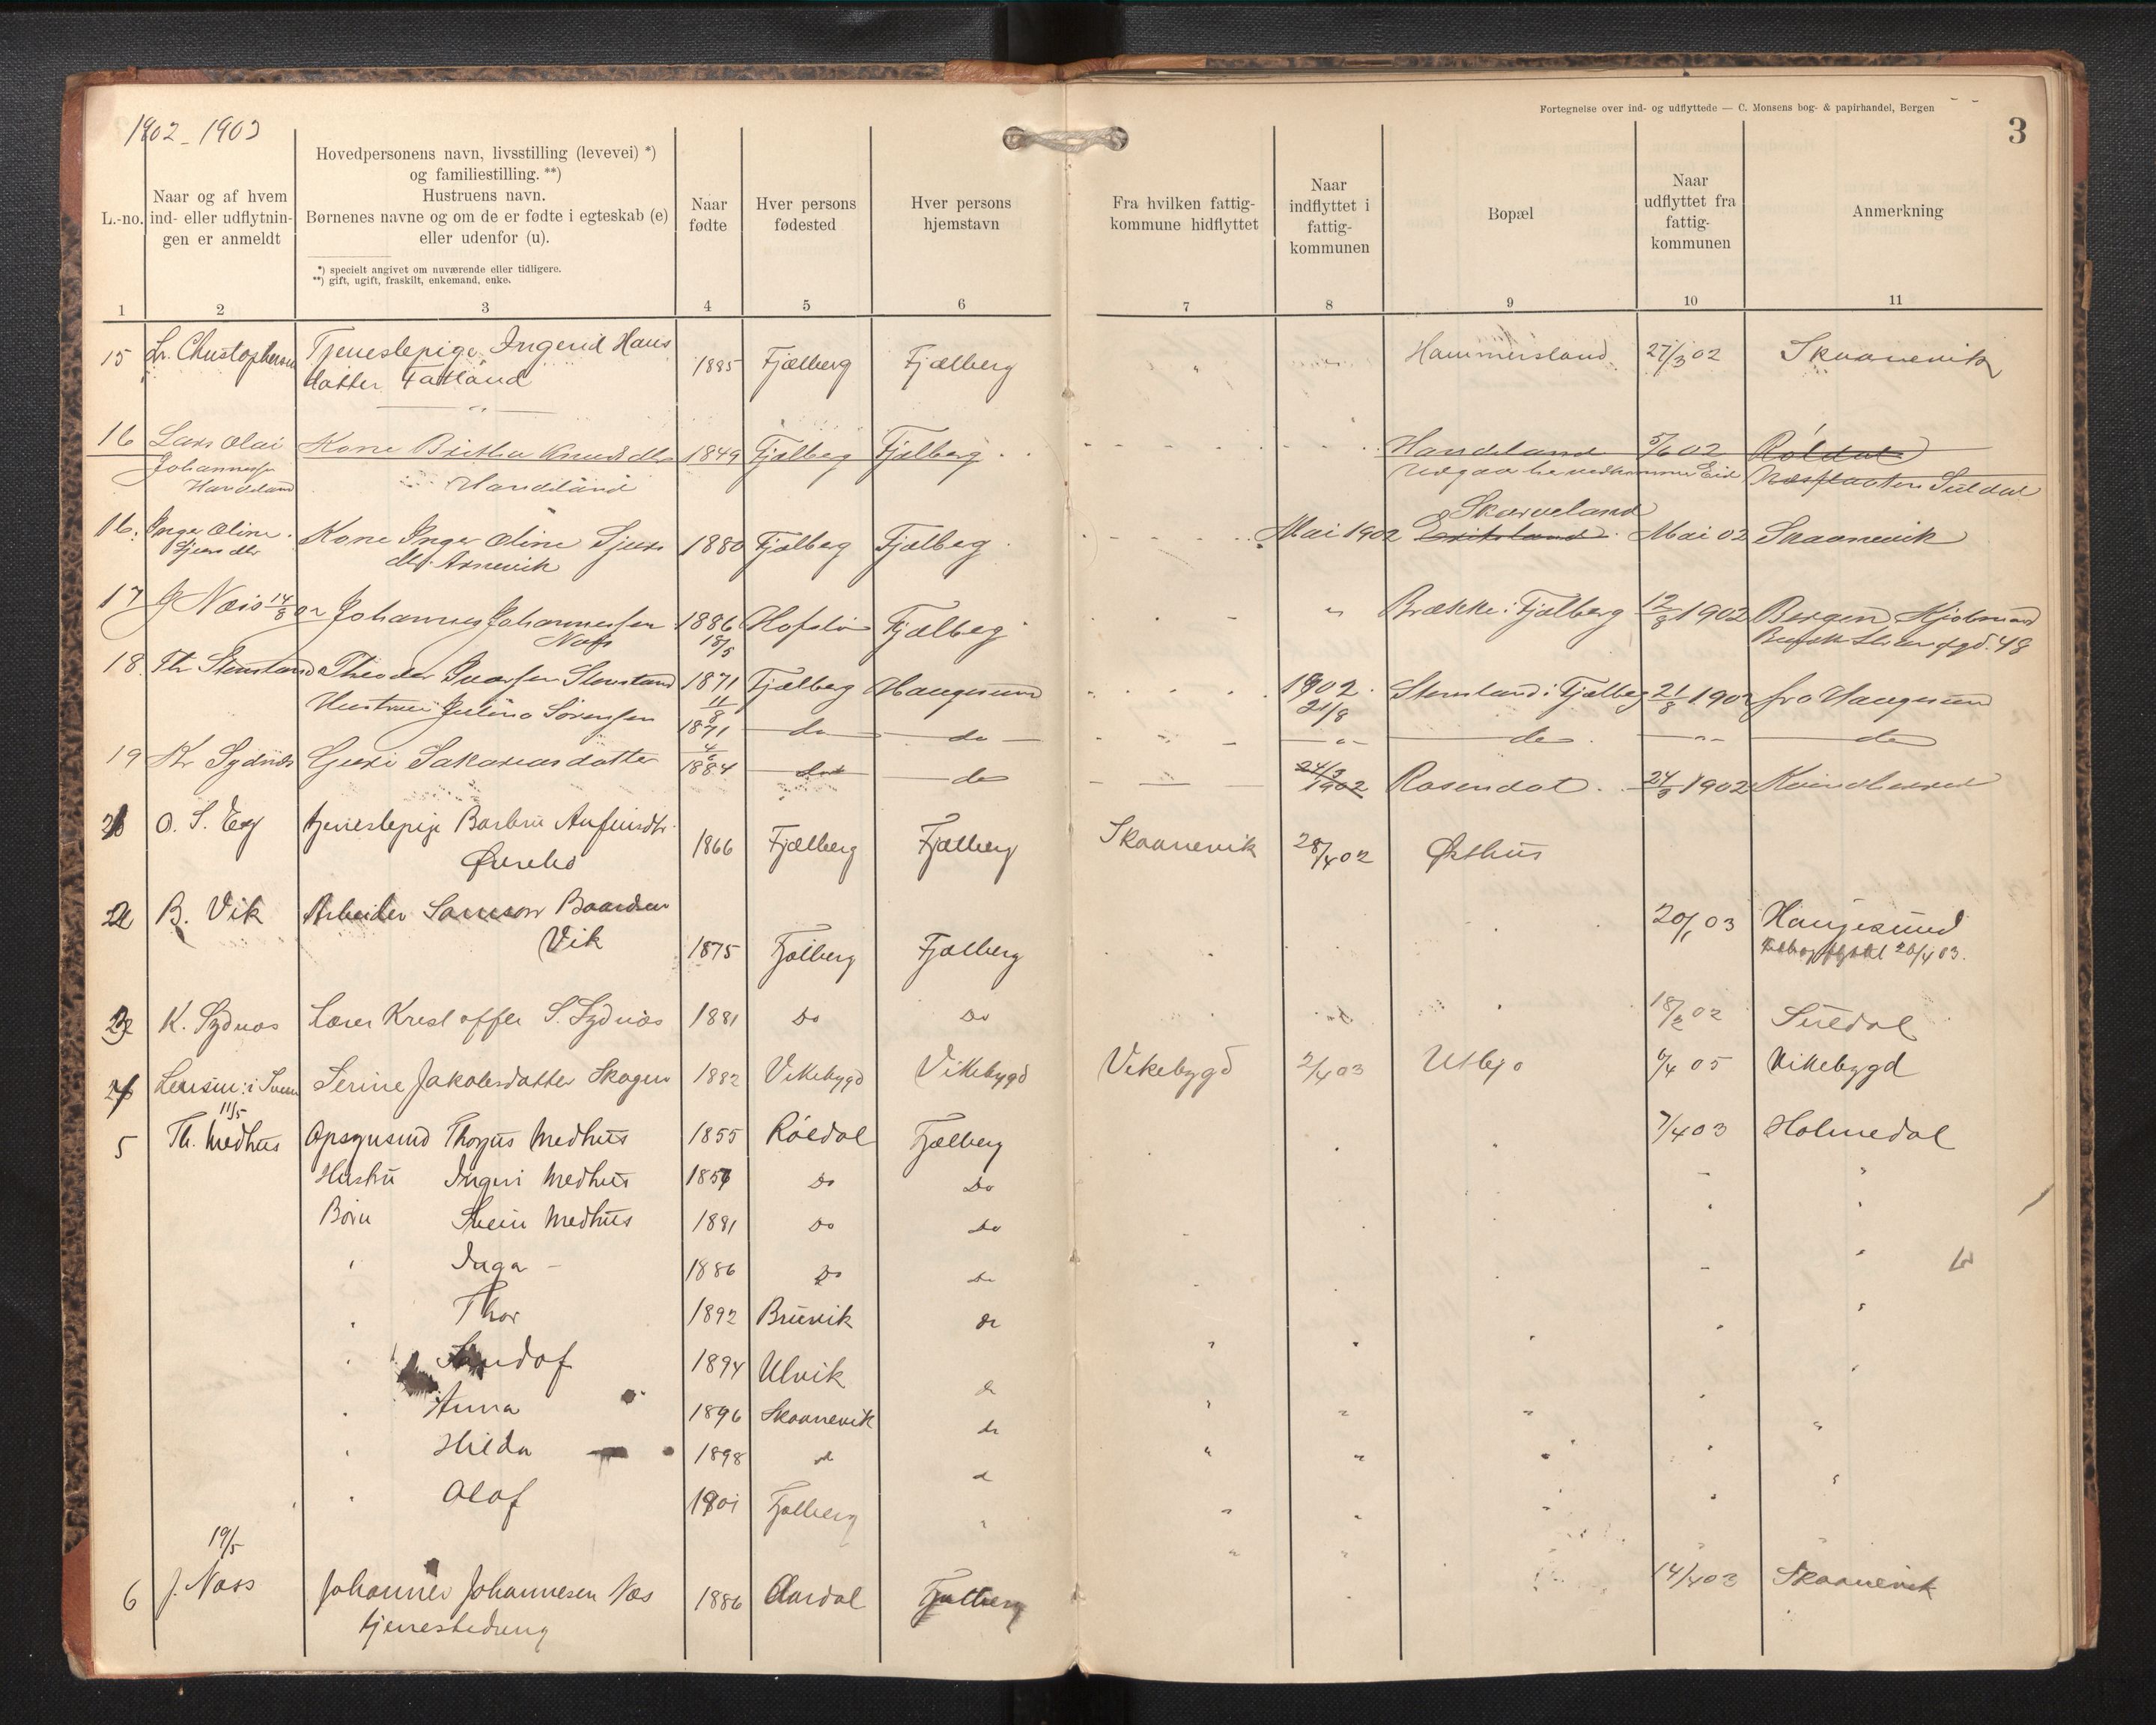 Fortegnelse over ind- og udflyttede — C. Monsens bog- & papirhandel, Bergen
3
1902 - 1903
L.-no.
Naar og af hvem
ind- eller udflytnin-
gen er anmeldt
Hovedpersonens navn, livsstilling (levevei) *)
og familiestilling. **)
Hustruens navn.
Børnenes navne og om de er fødte i egteskab (e)
eller udenfor (u).
*) specielt angivet om nuværende eller tidligere.
**) gift, ugift, fraskilt, enkemand, enke.
Naar
fødte
Hver persons
fødested
Hver persons
hjemstavn
Fra hvilken fattig-
kommune hidflyttet
Naar
indflyttet i
fattig-
kommunen
Bopæl
Naar
udflyttet fra
fattig-
kommunen
Anmerkning
1 2 3 4 5 6 7 8 9 10 11
15 Chrstophersen Tjenestepige Ingerid Hans 1885 Fjælberg Fjælberg Hammersland 27/3 02 Skaanevik
datter Fatland
16 Lars Olai Kone Britha Knudsdtr 1849 Fjælberg Fjælberg Handeland 5/6 02 Røldal
Johannessen Handeland Suldal
Handeland
16. Inger Oline Kone Inger Oline Sjurs 1880 Fjælberg Fjælberg Mai 1902 Skarveland Mai 02 Skaanevik
Sjurs dtr dtr. Arnevik
17 J Næs 14/8 02 Johannes Johannessen 1886 Hofslo Fjælberg " Brække i Fjælberg 12/8 1902 Bergen
Næs 18/5 48
18 Th Stensland Theodor Ivarsen Stensland 1871 Fjælberg Haugesund 1902 Stensland i Fjælberg 21/8 1902 fra Haugesund
Hustrue Julina Sørensen 11/8 1871 do do 21/8 do do
19 Kr Sydnæs Guri Sakariasdatter 4/6 1884 do do 24/9 1902 Rosendal 24/9 1902 Kvindherred
21 O. S. Eeg tjenestepige Barbru Anfinsdtr. 1866 Fjælberg Fjælberg Skaanevik 28/4 02 Østhus
Øvrebø
22 B. Vik Arbeider Samson Baardsen 1875 Fjælberg Fjælberg 20/1 03 Haugesund
Vik 20/4 03.
23 K. Sydnæs Lærer Kristoffer S. Sydnæs 1881 Do Do 18/2 02 Suldal
24 Lensm. i Sveen Serine Jakobsdatter Skogen 1882 Vikebygd Vikebygd Vikebygd 2/4 03 Utbjo 6/4 05 Vikebygd
11/5
5 Th. Medhus Opsynsmd Thorgus Medhus 1855 Røldal Fjælberg 7/4 03 Holmedal
Hustru Inguri Medhus 1856 Do Do
Børn Svein Medhus 1881 Do Do
" Inga - 1886 Do Do
" Thor 1892 Bruvik do
" Sandof 1894 Ulvik do
" Anna 1896 Skaanevik do
" Hilda 1898 do do
" Olof 1901 Fjælberg "
19/5
6 J. Næss Johannes Johannesen Næs 1886 Aardal Fjælberg 14/4 03 Skaanevik
tjenestedreng